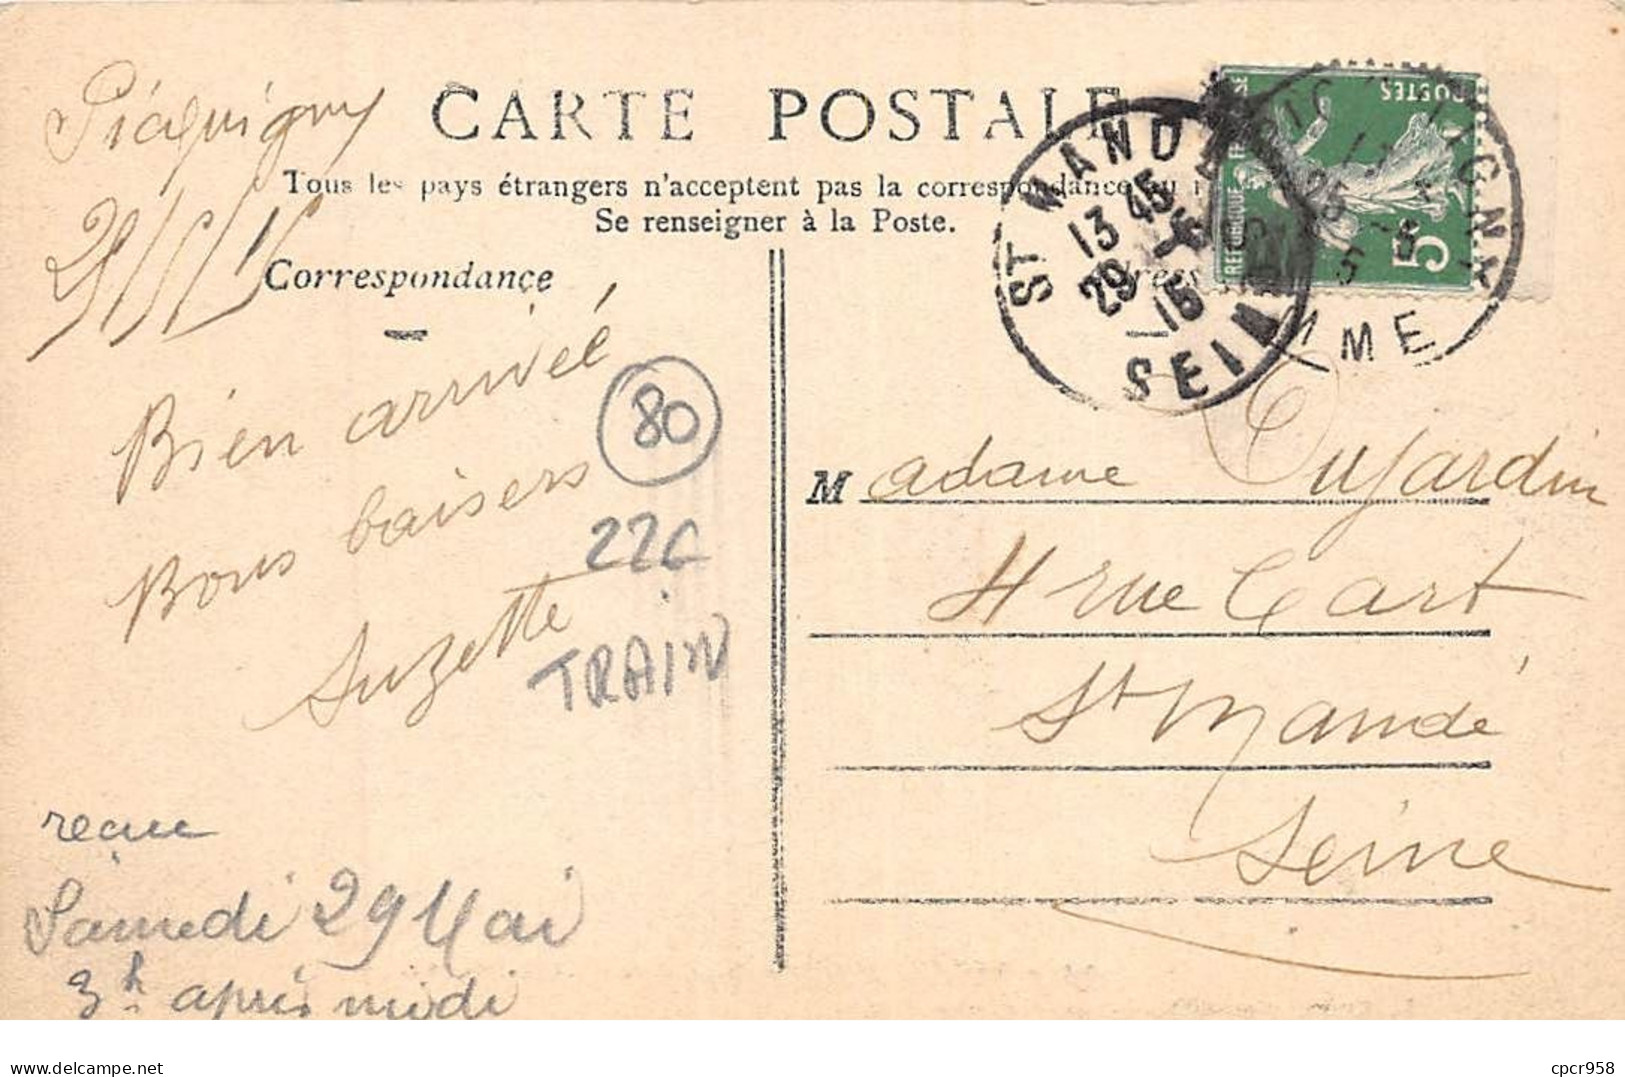 Picquigny
CARTE POSTALE
Tous les pays étrangers n'acceptent pas la correspondance au
Se renseigner à la Poste.
Correspondance
Bien arrivée
Bons baisers
Suzette
80
22C
TRAIN
reçue
Samedi 29 Mai
3h après midi
ST MANDÉ
13 45
29 -5
15
SEINE
POSTES
REPUBLIQUE FRANÇAISE
5
PICQUIGNY
SOMME
Madame Dujardin
4 rue Cart
St Mandé
Seine
delcampe.net
cpcr958